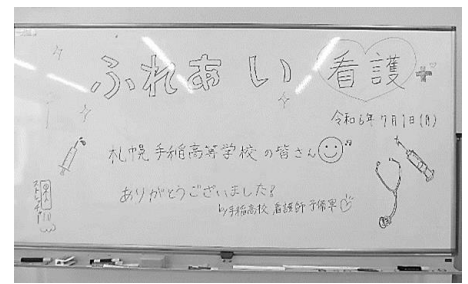 ふれあい看護
令和6年7月1日(月)
札幌手稲高等学校の皆さん
ありがとうございました!
by手稲高校 看護師 予備軍